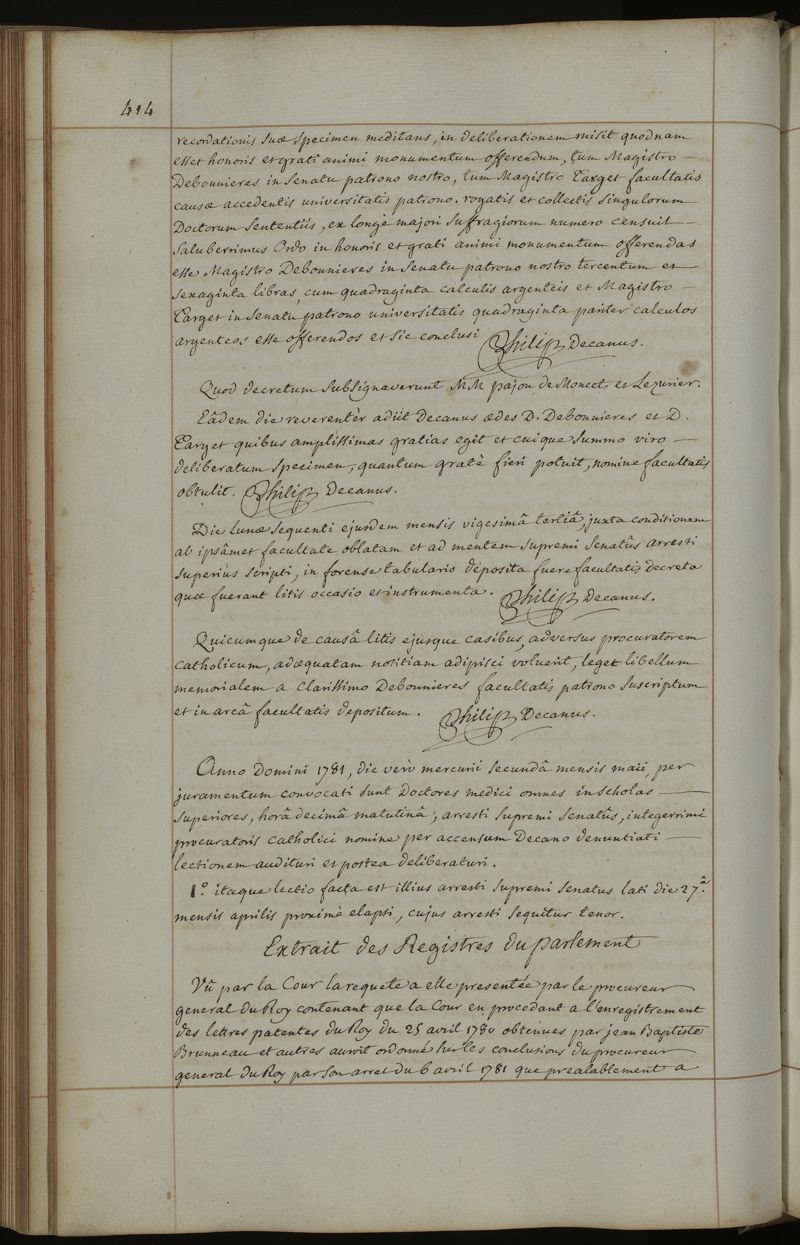 414
recordationis suæ specimen meditans, in deliberationem misit quodnam
esset honoris et grati animi monumentum offerendum, tum Magistro
Debonnieres in Senatu patrono nostro, tum Magistro Target facultatis
causæ accedentis universitatis patrono. rogatis et collectis singulorum
Doctorum Sententiis, ex longè majori suffragiorum numero censuit
Saluberrimus Ordo in honoris et grati animi monumentum offerendas
esse Magistro Debonnieres in Senatu patrono nostro tercentum et
sexaginta libras, cum quadraginta calculis argenteis et Magistro
Target in Senatu patrono universitatis quadraginta pariter calculos
argenteos esse offerendos et sic conclusi Philip Decanus.
Quod decretum subsignaverunt M.M. pajon de Moncets et Lezurier.
Eâdem die reverentèr adiit Decanus ædes D. Debonnieres et D.
Target quibus amplissimas gratias egit et cuique summo viro
deliberatum specimen, quantum gratè fieri potuit, nomine facultatis
obtulit. Philip Decanus.
Die lunæ sequenti ejusdem mensis vigesimâ tertiâ, juxta conditionem
ab ipsâmet facultate oblatam et ad mentem supremi Senatûs arresti
superiùs scripti, in forense tabulario deposita fuere facultatis decreta
quæ fuerant litis occasio et instrumenta. Philip Decanus.
Quicumque de causâ litis ejusque casibus, adversus procuratorem
Catholicum, adæquatam notitiam adipisci voluerit, leget libellum
memorialem a Clarissimo Debonnieres facultatis patrono suscriptum
et in arcâ facultatis depositum. Philip Decanus.
Anno Domini 1781, die verò mercurii secundâ mensis maii, per
juramentum convocati sunt Doctores medici omnes in scholas
superiores, horâ decimâ matutinâ, arresti supremi Senatûs, integerrimi
procuratoris Catholici nomine per accensum Decano denuntiati
lectionem audituri et postea deliberaturi.
1.º itaque lectio facta est illius arresti supremi Senatus lati die 27.â
mensis aprilis proximè elapsi, cujus arresti sequitur tenor.
Extrait des Registres du parlement
Vû par la Cour la requete a elle presentée par le procureur
general du Roy contenant que la Cour en procedant a l'enregistrement
des lettres patentes du Roy du 25 avril 1780 obtenues par jean Baptiste
Brunneau et autres auroit ordonné sur les conclusions du procureur
general du Roy par son arret du 6 avril 1781 que prealablement a